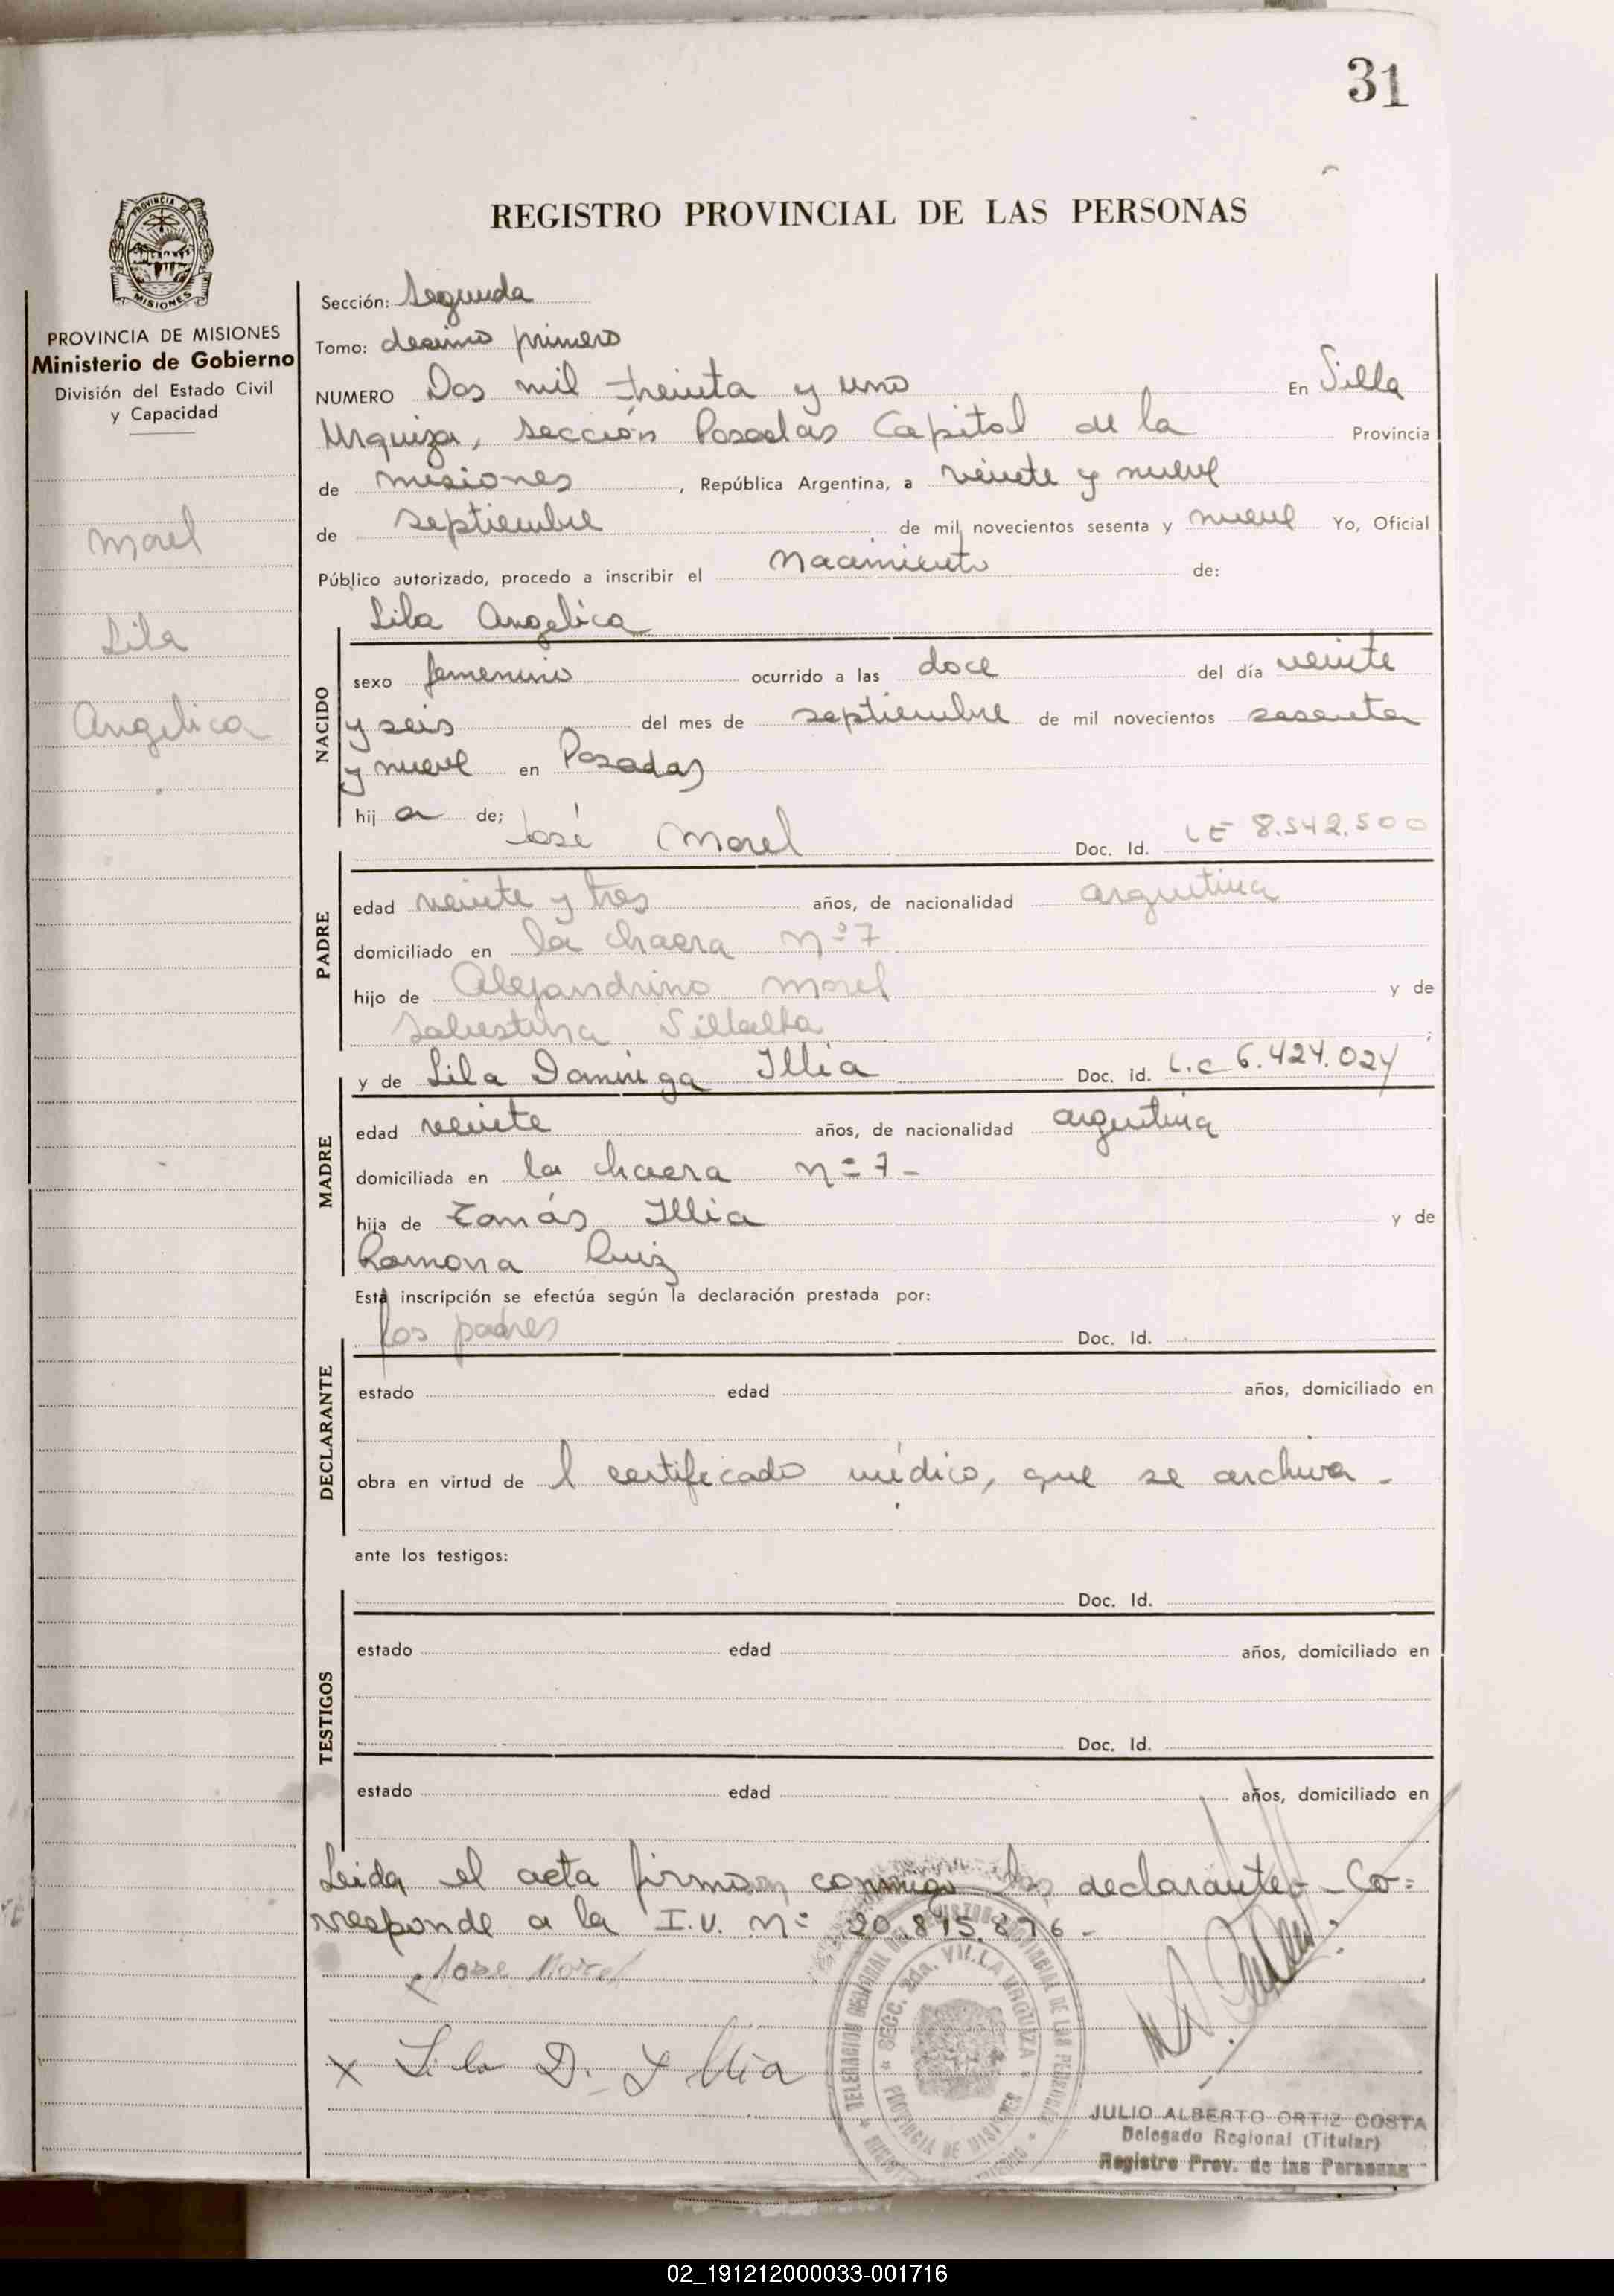 31
REGISTRO PROVINCIAL DE LAS PERSONAS
PROVINCIA DE MISIONES
Ministerio de Gobierno
División del Estado Civil
y Capacidad
Morel
Lila
Angelica
Sección: Segunda
Tomo: desimo primero
NUMERO Dos mil treinta y uno En Villa
Urquiza, Sección Posadas Capital de la Provincia
de misiones, República Argentina, a veinte y nueve
de septiembre de mil novecientos sesenta y nueve Yo, Oficial
Público autorizado, procedo a inscribir el nacimiento de:
Lila Angelica
NACIDO
sexo femenino ocurrido a las doce del día veinte
y seis del mes de septiembre de mil novecientos sesenta
y nueve en Posadas
hij a de;
José Morel Doc. Id. LE 8.542.500
PADRE
edad veinte y tres años, de nacionalidad argentina
domiciliado en la chacra nº 7
hijo de Alejandrino Morel y de
Salustina Villalba;
MADRE
y de Lila Dominga Illia Doc. id. L.C 6.424.024
edad veinte años, de nacionalidad argentina
domiciliada en la chacra nº 7-
hija de Tomás Illia y de
Ramona Ruiz
Esta inscripción se efectúa según la declaración prestada por:
los padres Doc. Id.
DECLARANTE
estado edad años, domiciliado en
obra en virtud de l certificado médico, que se archiva-
ante los testigos:
Doc. Id.
TESTIGOS
estado edad años, domiciliado en
Doc. Id.
estado edad años, domiciliado en
Leida el acta firman conmigo los declarantes-Co=
rresponde a la I.U. nº 20.895.876-
Jose Morel
x Lila D. Illia
SECC. 2da. VILLA URQUIZA
PROVINCIA DE MISIONES
JULIO ALBERTO ORTIZ COSTA
Delegado Regional (Titular)
Registro Prov. de las Personas
02_191212000033-001716